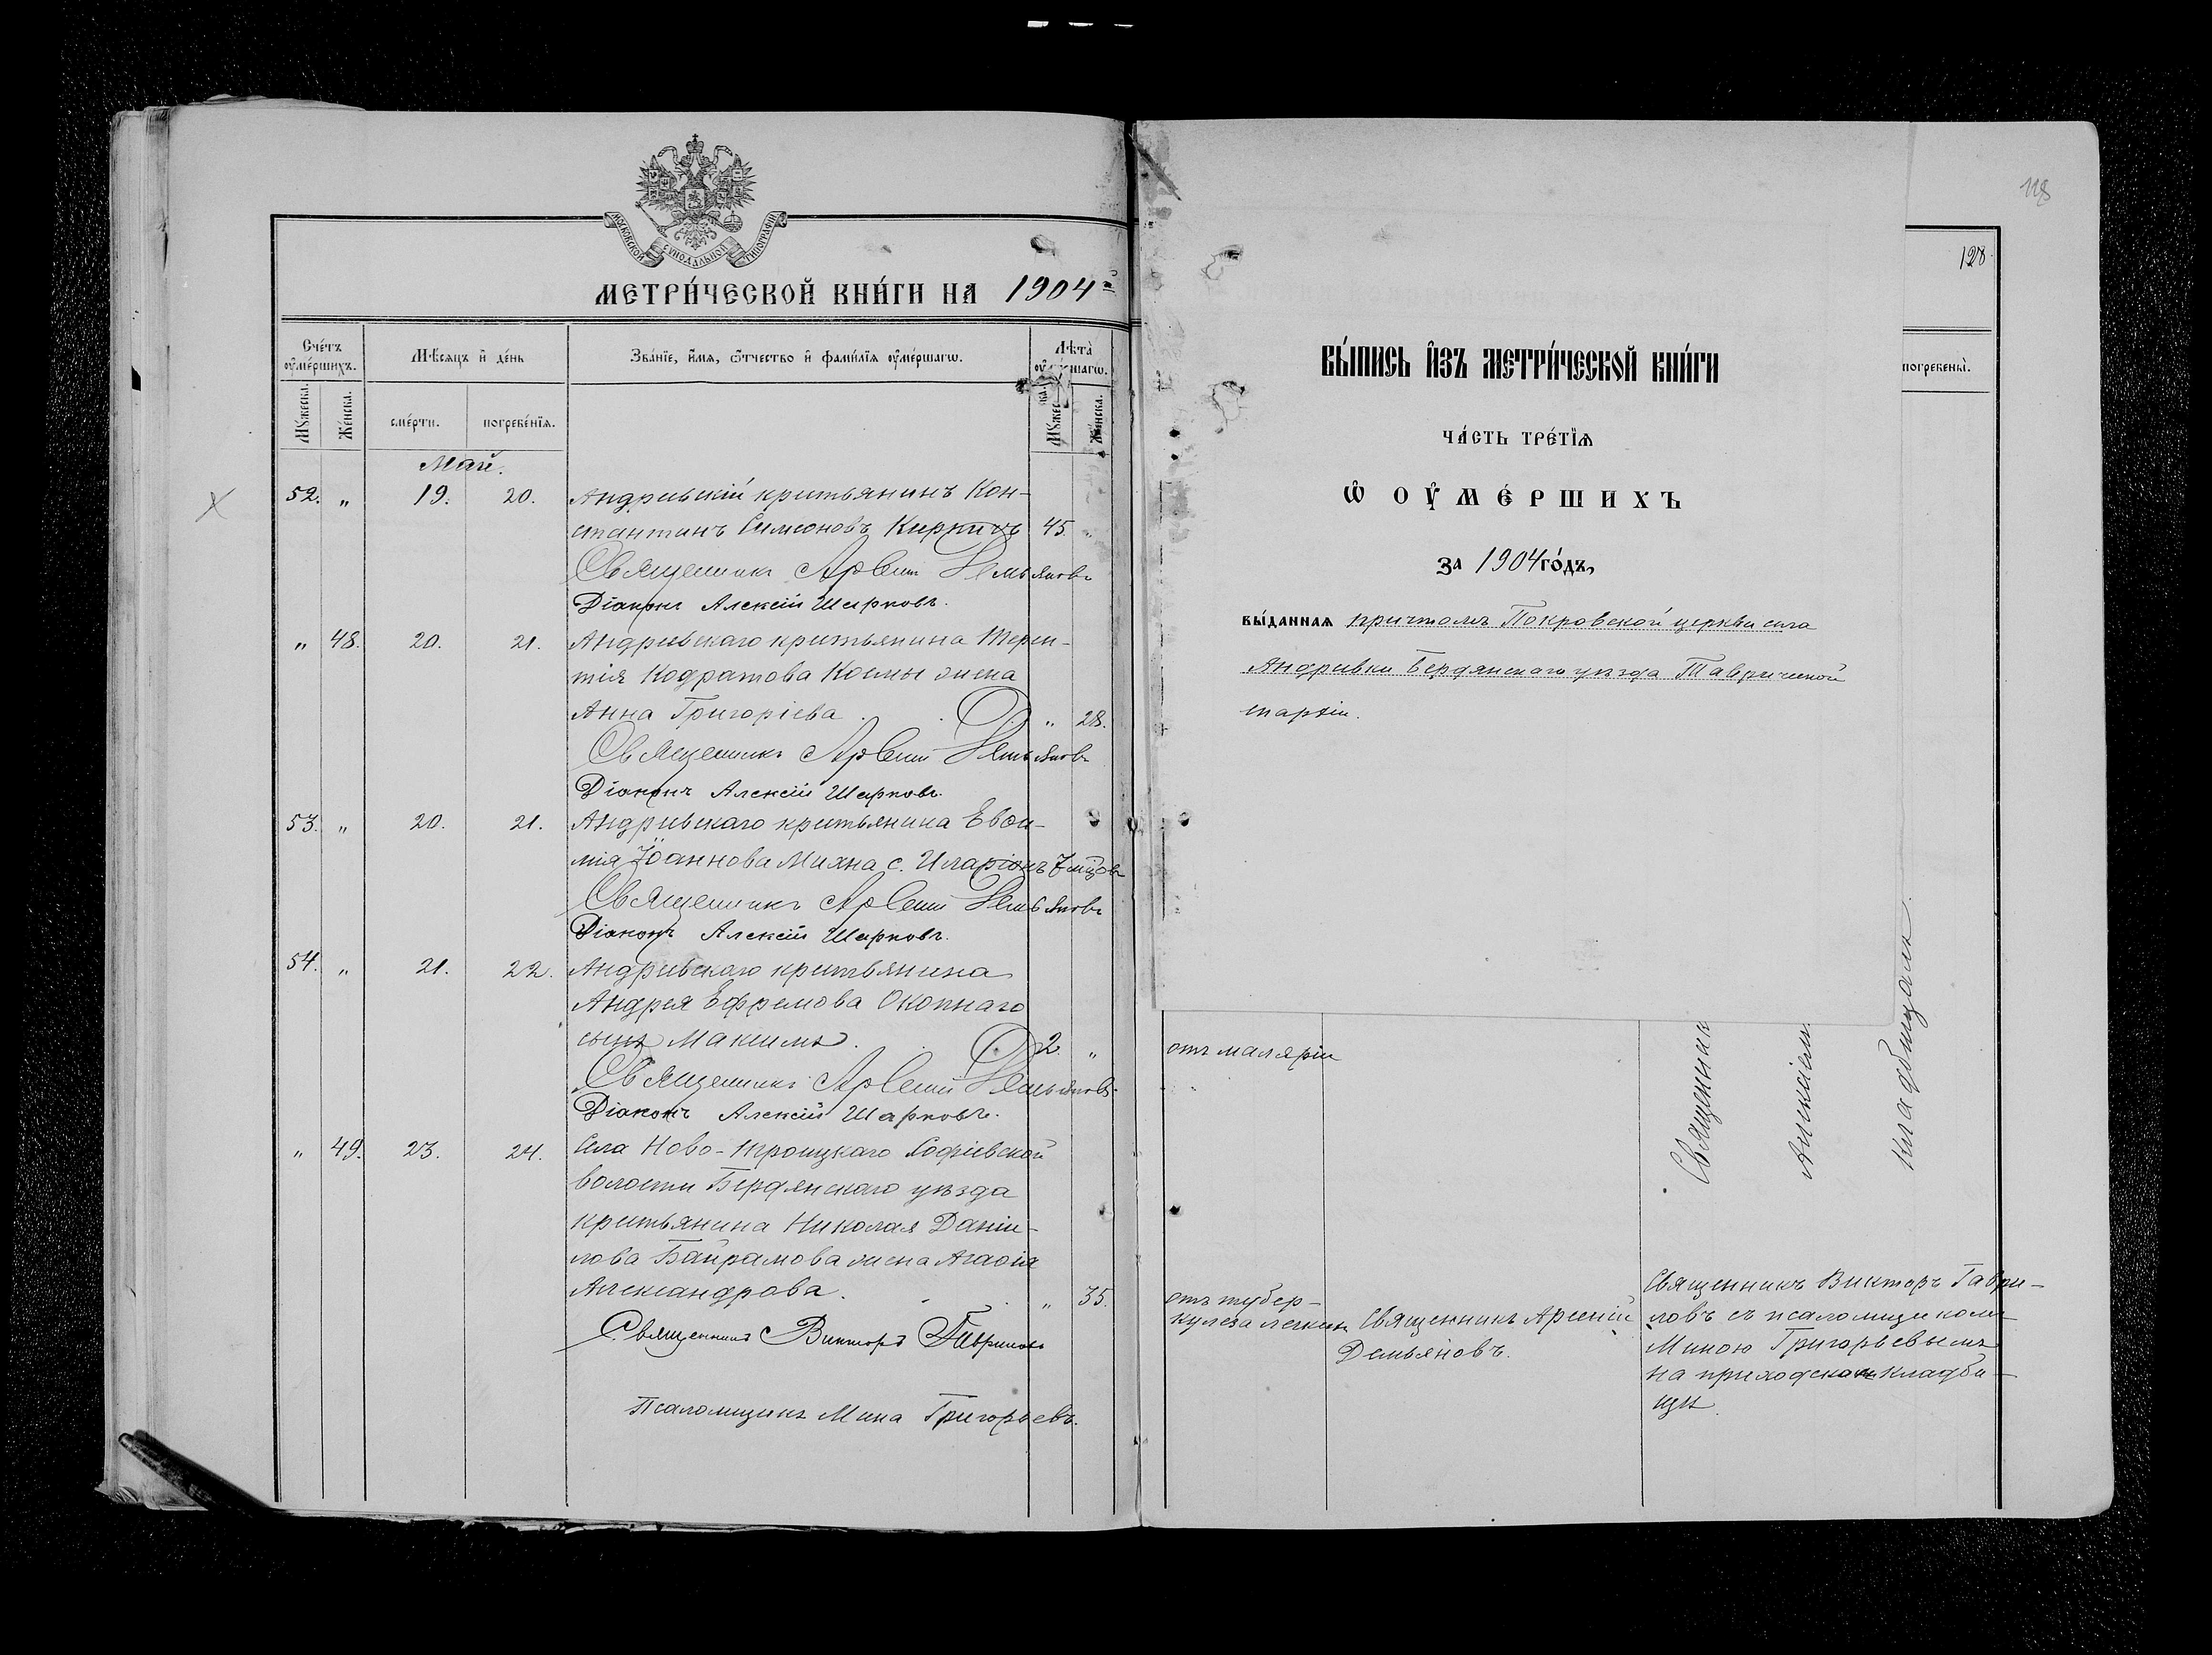 МОСКОВСКОЙ СѴНОДАЛЬНОЙ ТИПОГРАФІИ
МЕТРИ́ЧЕСКОЙ КНИ́ГИ НА 1904
Сче́тъ оу҆ме́ршихъ.
Мѣ́сяцъ и҆ де́нь
Зва́нїе, и҆́мя, ѻ҆́тчество и҆ фами́лїя оу҆ме́ршагѡ.
Лѣ́та
Мꙋ́жеска.
Же́нска.
сме́рти.
погребе́нїя.
Май.
52. „ 19. 20. Андреевскій крестьянинъ Кон-
стантинъ Симеоновъ Кирпичъ 45. „
Священникъ Арсеній Демьяновъ
Діаконъ Алексій Шарковъ.
„ 48. 20. 21. Андреевскаго крестьянина Терен-
тія Кодратова Космы жена
Анна Григоріева . . „ 28.
Священникъ Арсеній Демьяновъ
Діаконъ Алексій Шарковъ.
53. „ 20. 21. Андреевскаго крестьянина Евѳи-
мія Іоаннова Михна с. Иларіонъ 7 мѣсцовъ
Священникъ Арсеній Демьяновъ
Діаконъ Алексій Шарковъ.
54. „ 21. 22. Андреевскаго крестьянина
Андрея Ефремова Окопнаго
сынъ Максимъ . . 2. „
Священникъ Арсеній Демьяновъ
Діаконъ Алексій Шарковъ.
„ 49. 23. 24. Села Ново-Троицкаго Софіевской
волости Бердянскаго уѣзда
крестьянина Николая Даніи-
лова Байрамова жена Агаѳія
Александрова. „ 35.
Священникъ Викторъ Гавриловъ
Псаломщикъ Мина Григорьевъ.
118
128
погребены̀.
ВЫ́ПИСЬ И҆ЗЪ МЕТРИ́ЧЕСКОЙ КНИ́ГИ
ЧА́СТЬ ТРЕ́ТЇѦ
Ѽ ОУ҆МЕ́РШИХЪ
За 1904 го́дъ,
вы́данная причтомъ Покровской церкви села
Андреевки Бердянскаго уѣзда Таврической
епархіи.
отъ маляріи
Священник
Алексіем
кладбищахъ.
отъ тубер-
кулеза легкихъ
Священникъ Арсеній
Демьяновъ.
Священникъ Викторъ Гаври-
ловъ съ псаломщикомъ
Миною Григорьевымъ
на приходскомъ кладби-
щѣ.